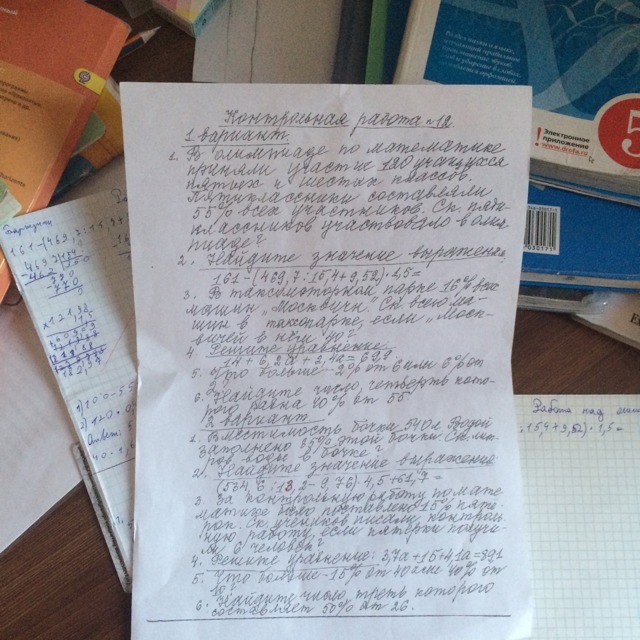 Контрольная работа №12
1 вариант
1. В олимпиаде по математике
приняли участие 120 учащихся
пятых и шестых классов.
Пятиклассники составляли
55% всех участников. Ск. пяти-
классников участвовало в олим
пиаде?
2. Найдите значение выражения
161-(469,7:15,4+9,52)·1,5=
3. В таксомоторном парке 16% все
машин „Москвичи". Ск. всего ма-
шин в таксопарке, если „Моск-
вичей в нём
4. Решите уравнение
5. Что больше - % от 6 или 6% от
6. Найдите число, четверть кото-
рого равна 40% от 55
2 вариант
1. Вместимость бочки 540л. Водой
заполнено 35% этой бочки. Ск. лит-
ров воды в бочке?
2. Найдите значение выражения
(534,6:13,2-9,76)·4,5+61,7=
3. За контрольную работу по мате
матике было поставлено 15% пяте-
рок. Ск. учеников писали контроль-
ную работу, если пятёрки получи-
ли 6 человек?
4. Решите уравнение: 3,7а+15+4,1а=391
5. Что больше - 15% от 40 или 40% от
6. Найдите число, треть которого
составляет 50% от 26.
Электронное
приложение
www.drofa.ru
5
Работа над
15,4+9,52)·1,5=